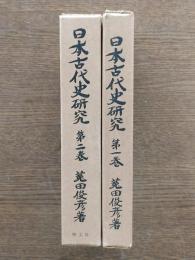 日本古代史研究 第二巻 菟田俊彦著
日本古代史研究 第一巻 菟田俊彦著